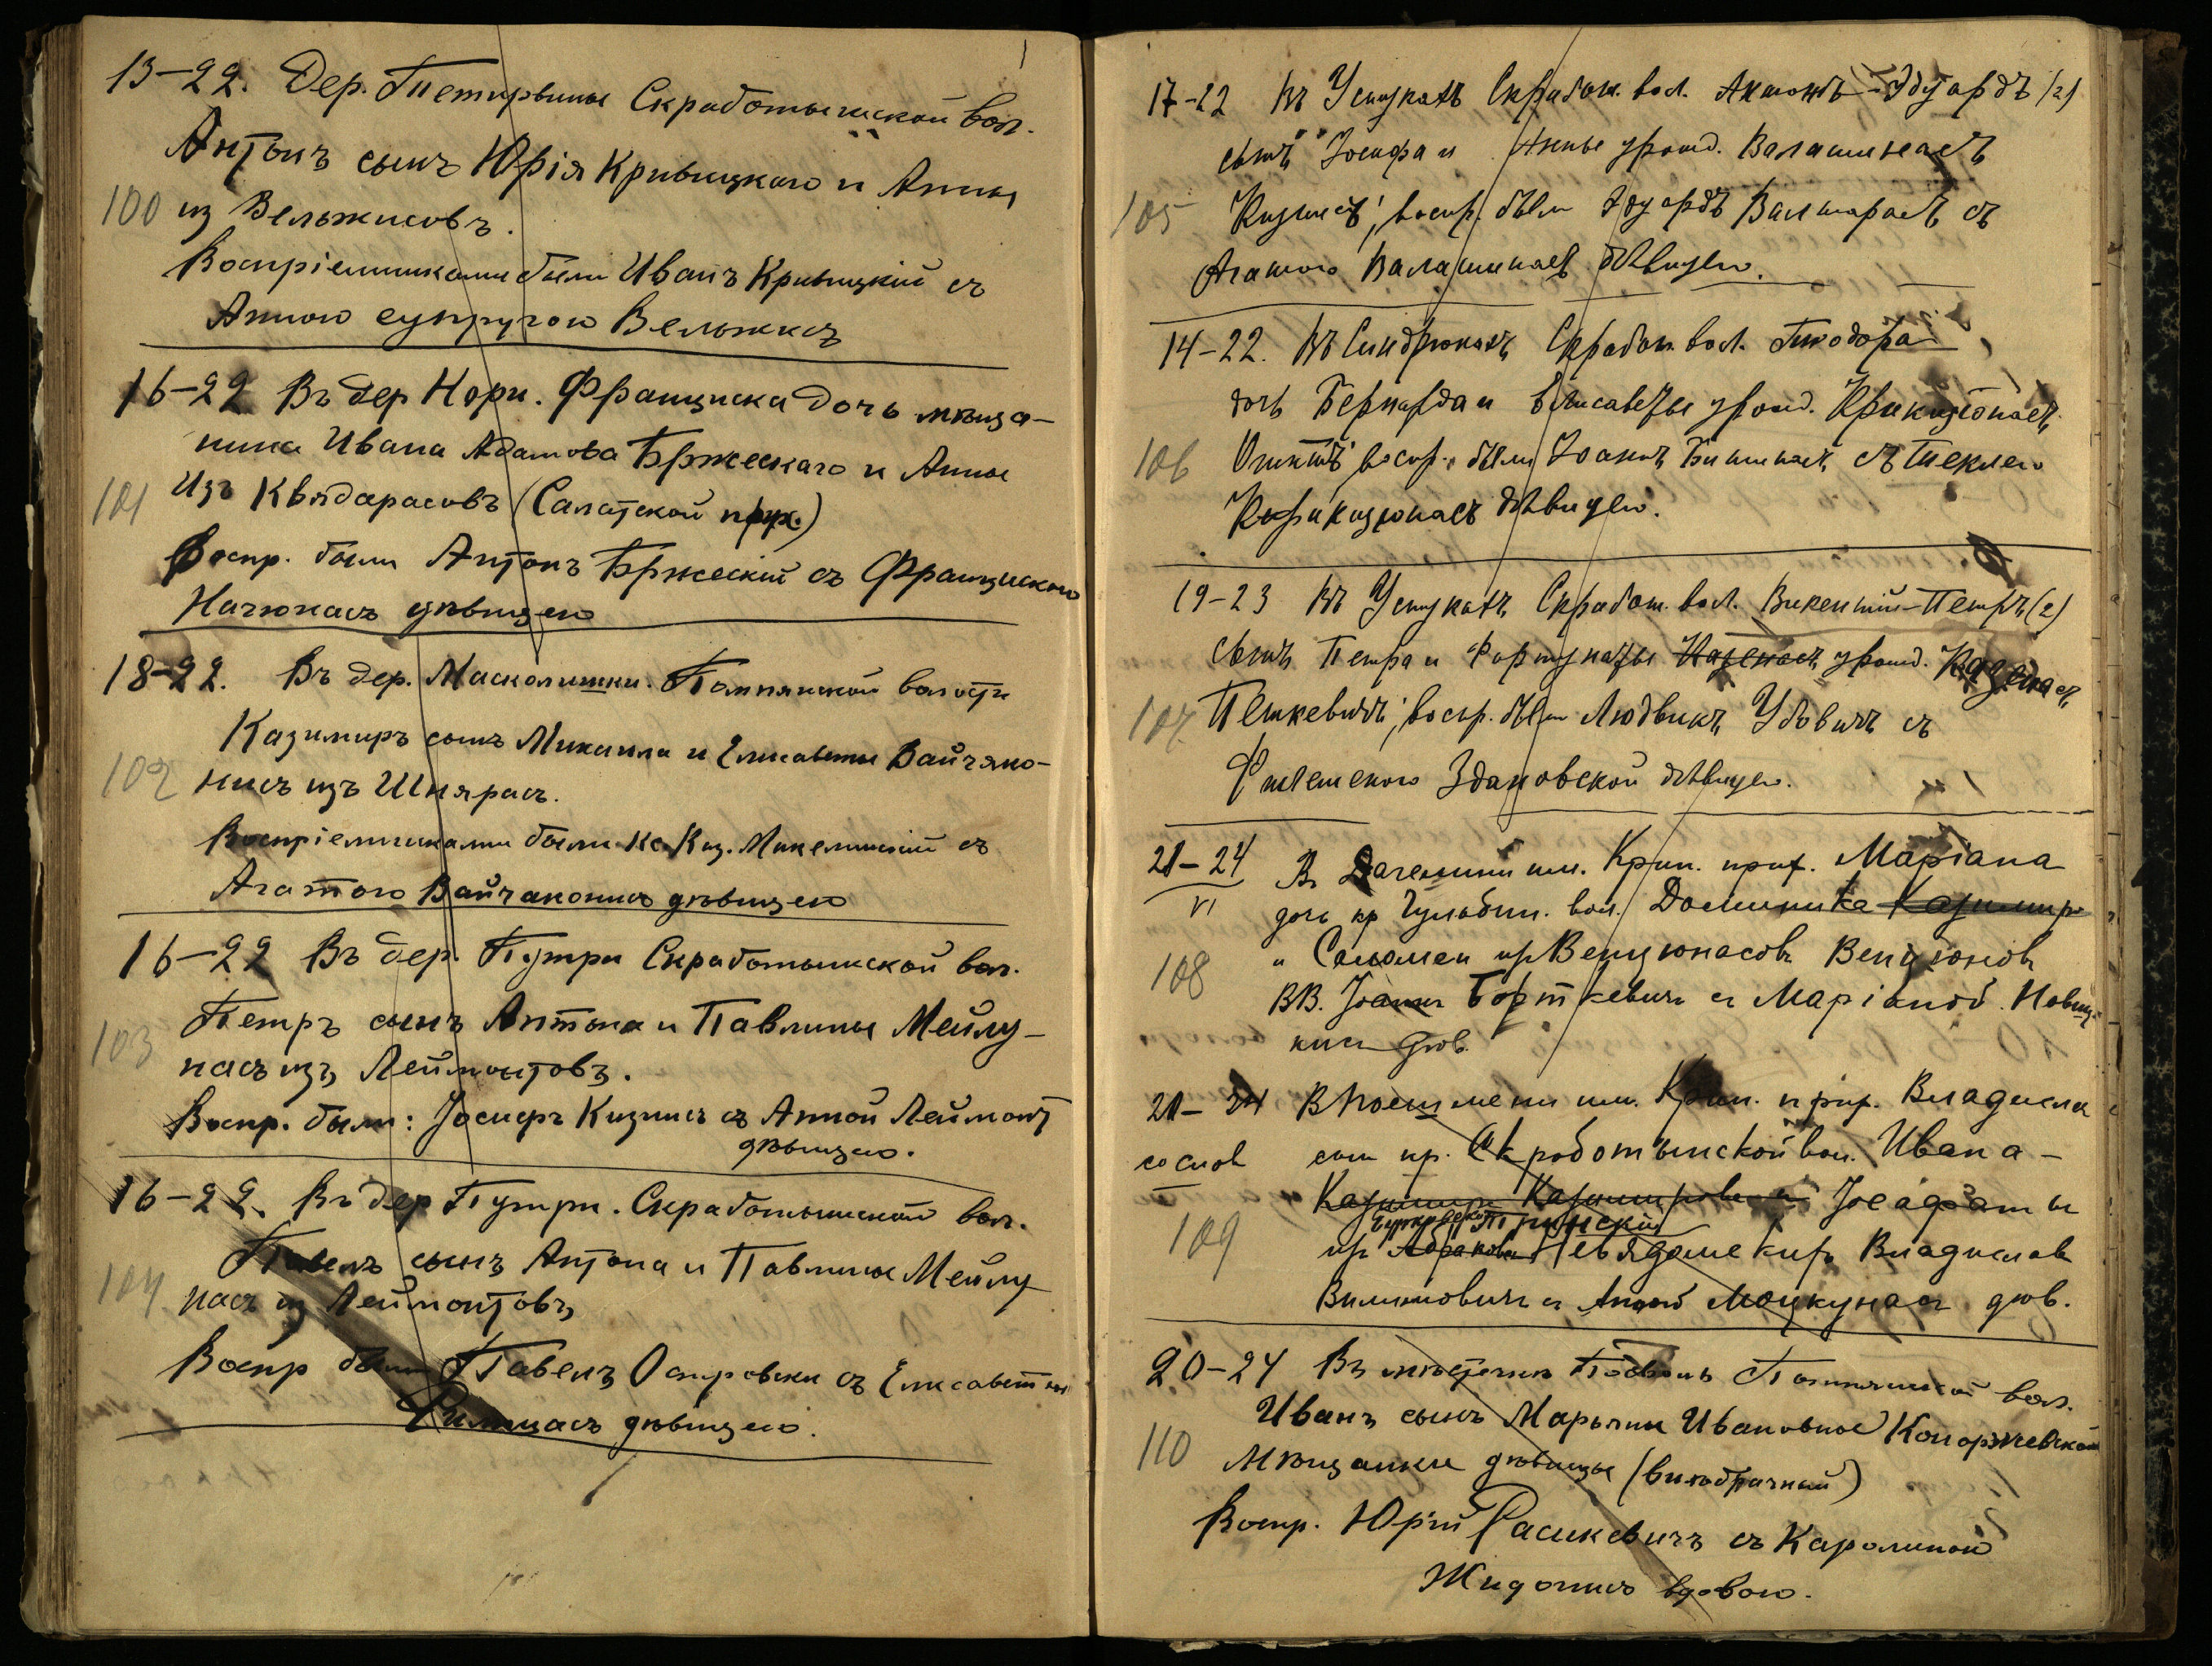 13-22. Дер. Петировины Скработышской вол.
Антонъ сынъ Юрія Кривицкаго и Анны
100 из Вельжисовъ.
Воспріемниками были Иванъ Кривицкій съ
Анною супругою Вельжисъ
16-22 Въ дер Нори. Франциска дочь мѣща-
нина Ивана Адамова Бржескаго и Анны
101 Изъ Квядарасовъ (Салатской прих.)
Воспр. были Антонъ Бржескій съ Францискою
Начюнасъ дѣвицею
18-22. Въ дер. Масколишки. Помпянской волости
Казимиръ сынъ Михаила и Елисаветы Вайчяко-
102 нисъ изъ Шнярасъ.
Воспріемниками были Кс. Каз. Микелинскій съ
Агатою Вайчаконисъ дѣвицею
16-22 Въ дер. Путри Скработышской вол.
Петръ сынъ Антона и Павлины Мейлу-
103 насъ изъ Леймонтовъ.
Воспр. были: Іосифъ Кизинсъ съ Анной Леймонт
дѣвицею.
16-22. Въ дер Путри. Скработышской вол.
Павелъ сынъ Антона и Павлины Мейлу
104 насъ из Леймонтовъ
Воспр были Павелъ Островски съ Елисаветы
дѣвицею.
17-22 Въ Успукахъ Скработ. вол. Антонъ-Эдуардъ (2)
сынъ Іосифа и Анны урожд. Валашинасъ
105 Кизинсъ; воспр. были Эдуардъ Валтарасъ съ
Агатою Валашинасъ дѣвицею.
14-22. Въ Синдрюнахъ Скработ. вол. Теодора
дочь Бернарда и Елисаветы урожд. Крикщюнасъ
106 воспр. были Іоаннъ съ Теклею
Крикщюнасъ дѣвицею.
19-23 Въ Успукахъ Скработ. вол. Викентій-Петръ (2)
сынъ Петра и Фортунаты урожд.
107 Петкевичъ; воспр. были Людвикъ Удовичъ съ
Здановской дѣвицею.
21-24 В им. Крин. прих. Маріана
VI дочь кр вол. Доминика Казимир
108 и Саломеи ур Венцюнасовъ Венцюновъ
ВВ. Іоаннъ Борткевичъ съ Маріаной. Новиц-
кис дѣв.
21-24 им. Крин. прих. Владисла
сослов сын кр. Скработынской вол. Ивана-
Казимира Казимировича Іосафаты
109 ур Владислав
съ Анной Моцкунасъ дѣв.
20-24 Въ мѣстечкѣ Помпянской вол.
Иванъ сынъ Марьяны Ивановны Коноржевской
110 Мѣщанки дѣвицы (внѣбрачный)
Воспр. Юрій Расикевичъ съ Каролиной
Жидонисъ вдовою.